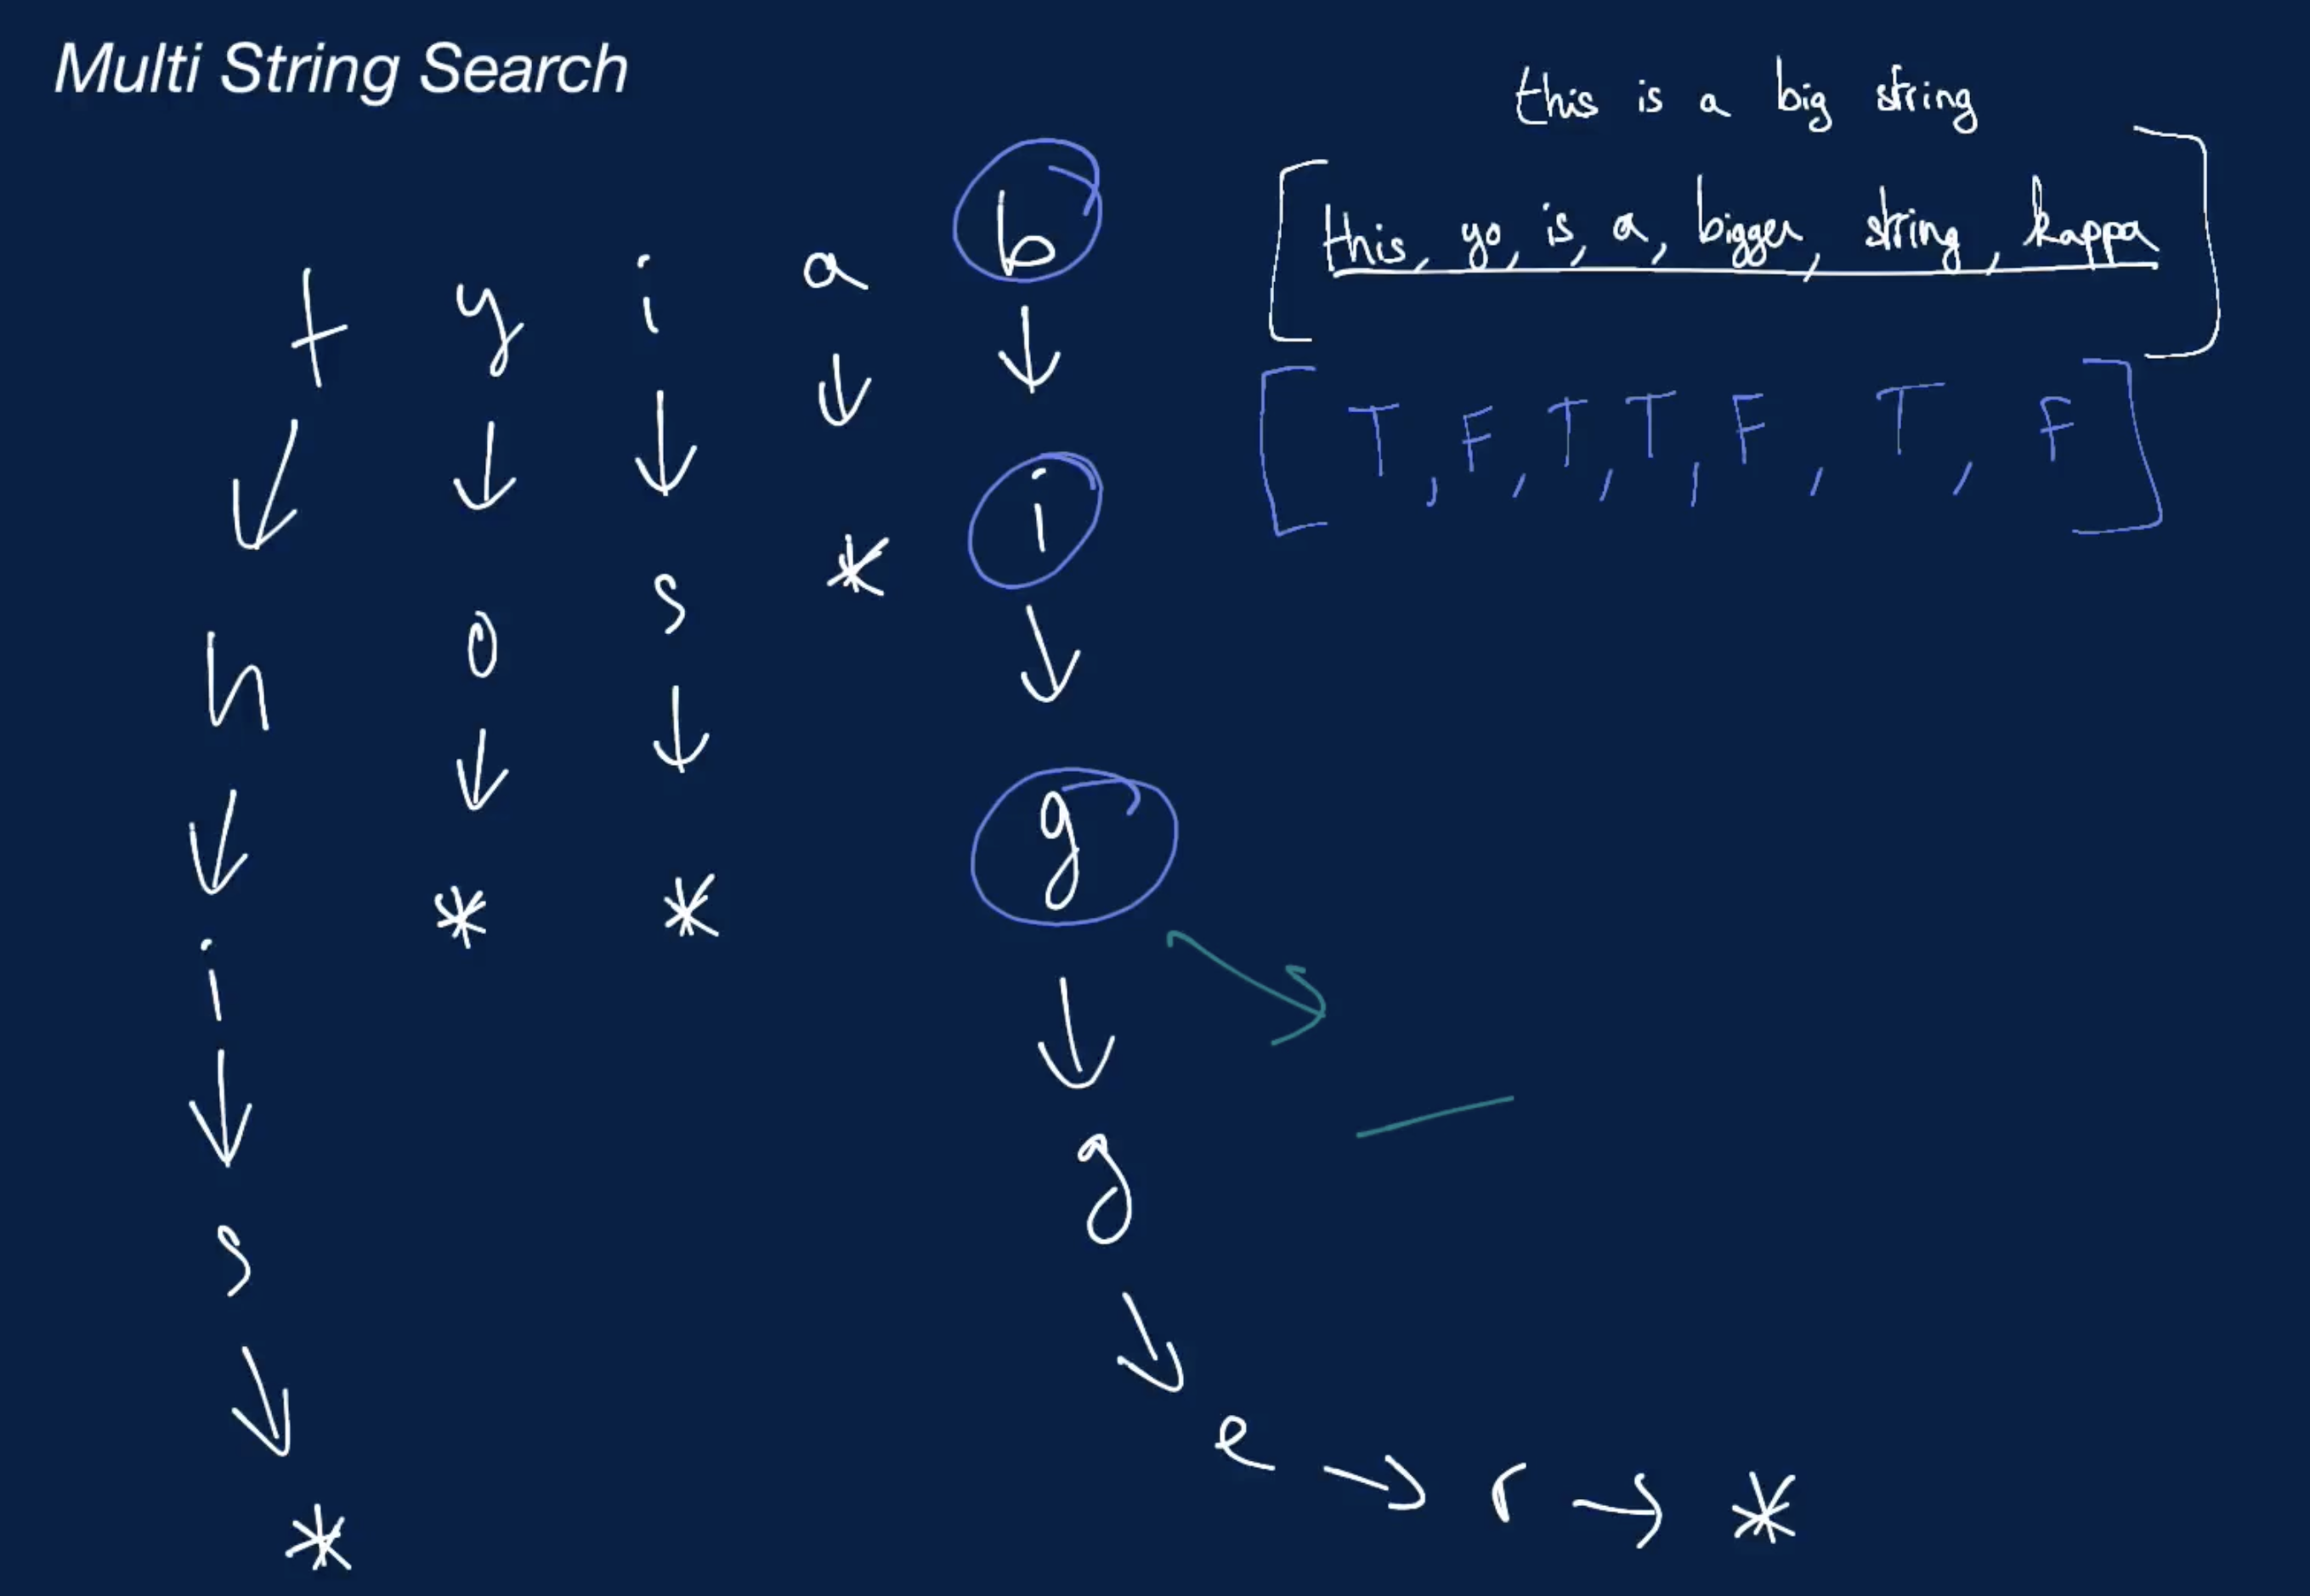 Multi String Search
this is a big string
[this, yo, is, a, bigger, string, kappa]
[T, F, T, T, F, T, F]
t y i a b
h o s * i
i * * g
s g
* e r *